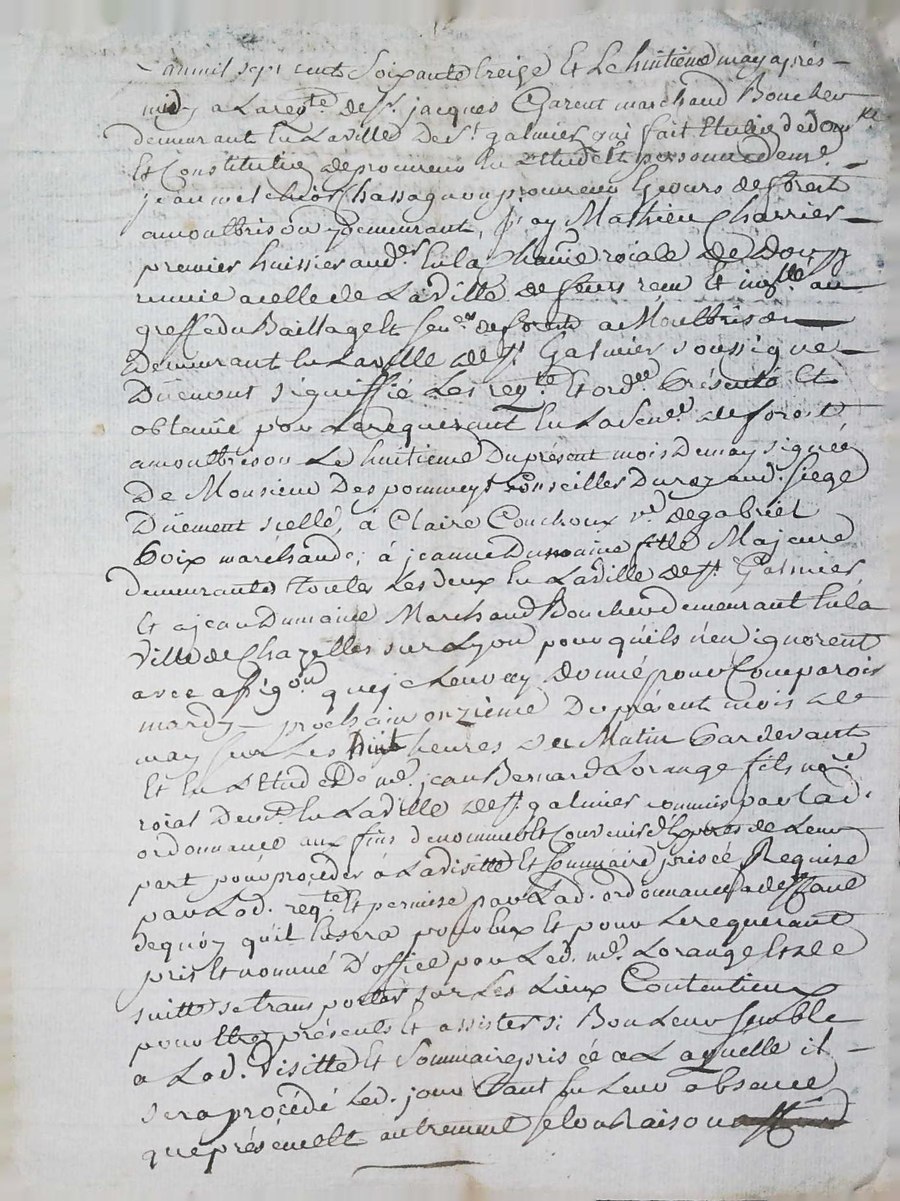 L'an mil sept cent soixante treize Et Le huitieme may après
midy a La reqte. de Sr. jacques Garent marchand Boucher
demeurant En La ville De St. galmier qui fait Election de domle
Et Constitution de procureur En L'Etude Et personne de me.
jean melchior Chassagnon procureur Es cours de forest
a montbrison y demeurant, j'ay Mathieu Charrier
premier huissier audr. En la Chatnie roiale de Donzy
reunie a celle de La Ville de feurs reçu Et immlé au
greffe du Baillage Et Senes. de forest a Montbrison
Demeurant En La ville de St. Galmier soussigne
Dûement signiffié Les reqte. Et ordce. présenté Et
obtenüe par Le requerant En La Sene. de forest
a montbrison Le huitieme Du présent mois De may signée
De Monsieur Des pommeys Conseiller Du roy aud. siege
Dûement scellé, à Claire Couchoux ve. de gabriel
Boix marchande; à jeanne Dumaine fille Majeure
demeurantes toutes Les deux En La Ville de St. Galmier
Et a jean Dumaine Marchand Boucher demeurant En la
ville de Chazelles sur Lyon pour qu'ils n'en ignorent
avec assigon. que je Leur ay Donné pour Comparoir
mardy prochain onzième Du présent mois de
may sur Les huit heures du Matin Pardevant
Et En L'Etude De me. jean Bernard Lorange fils nore.
roial Demt. En La Ville de St. galmier commis par Lad.
ordonnance aux fins de nommer Et Convenir d'Experts de Leur
part pour procéder à La visitte Et Sommaire prisée Requise
par Lad. reqte Et permise par Lad. ordonnance, a deffaut
de quoy qu'il En sera pour Eux Et pour Le requerant
pris Et nommé D'office par Led. me. Lorange Et de
suitte se transporter sur Les Lieux Contentieux
pour Etre présents Et assister si Bon Leur semble
a Lad. Visitte Et Sommaire prisée a Laquelle il
sera procédé Led. jour Tant En Leur absence
que présence Et autrement selon Raison